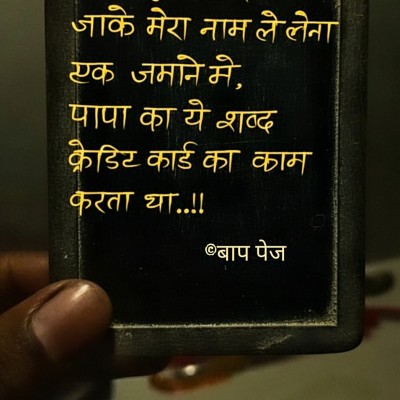 जाके मेरा नाम ले लेना
एक जमाने मे,
पापा का ये शब्द
क्रेडिट कार्ड का काम
करता था..!!
©बाप पेज